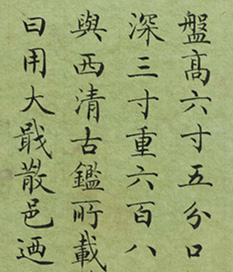 盤髙六寸五分口
深三寸重六百八
與西清古鑑所載
曰用大戢散邑迺